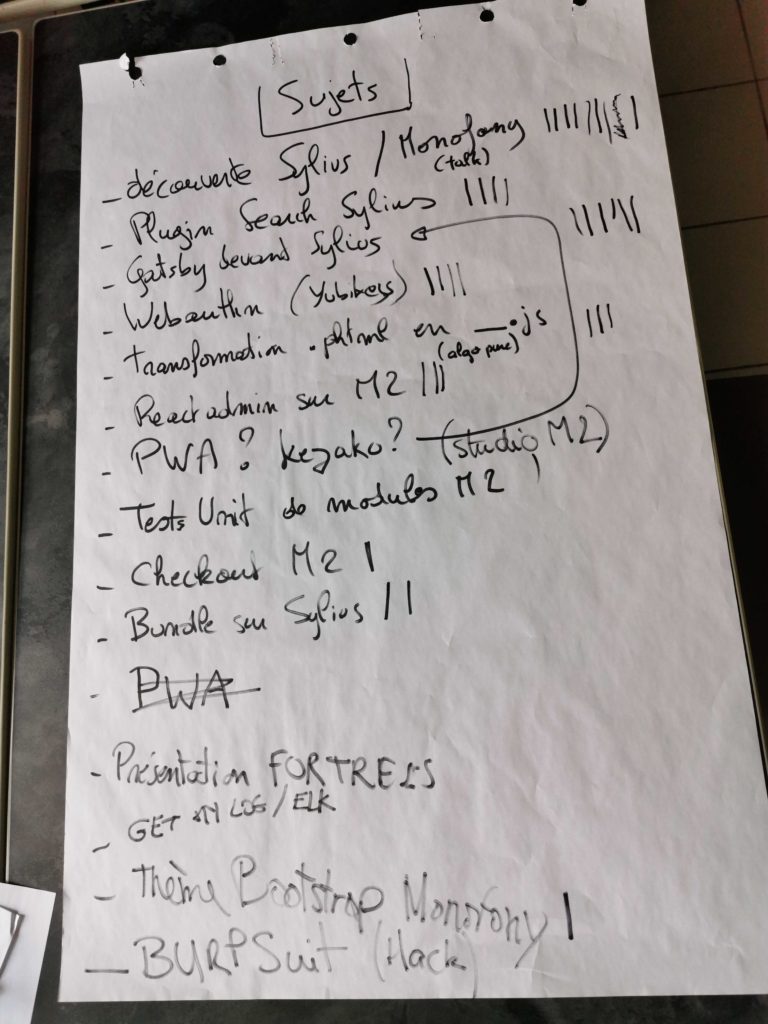 Sujets
- découverte Sylius / Monofony
(talk)
- Plugin Search Sylius ||||
- Gatsby devant Sylius
- Webauthn (Yubikeys) ||||
- Transformation .phtml en __.js |||
(algo pure)
- React admin sur M2 |||
- PWA ? kezako ? (studio M2)
- Tests Unit de modules M2 |
- Checkout M2 |
- Bundle sur Sylius ||
- PWA
- Présentation FORTRESS
- GET MY LOG / ELK
- Thème Bootstrap Monofony |
- BURPSuit (Hack)